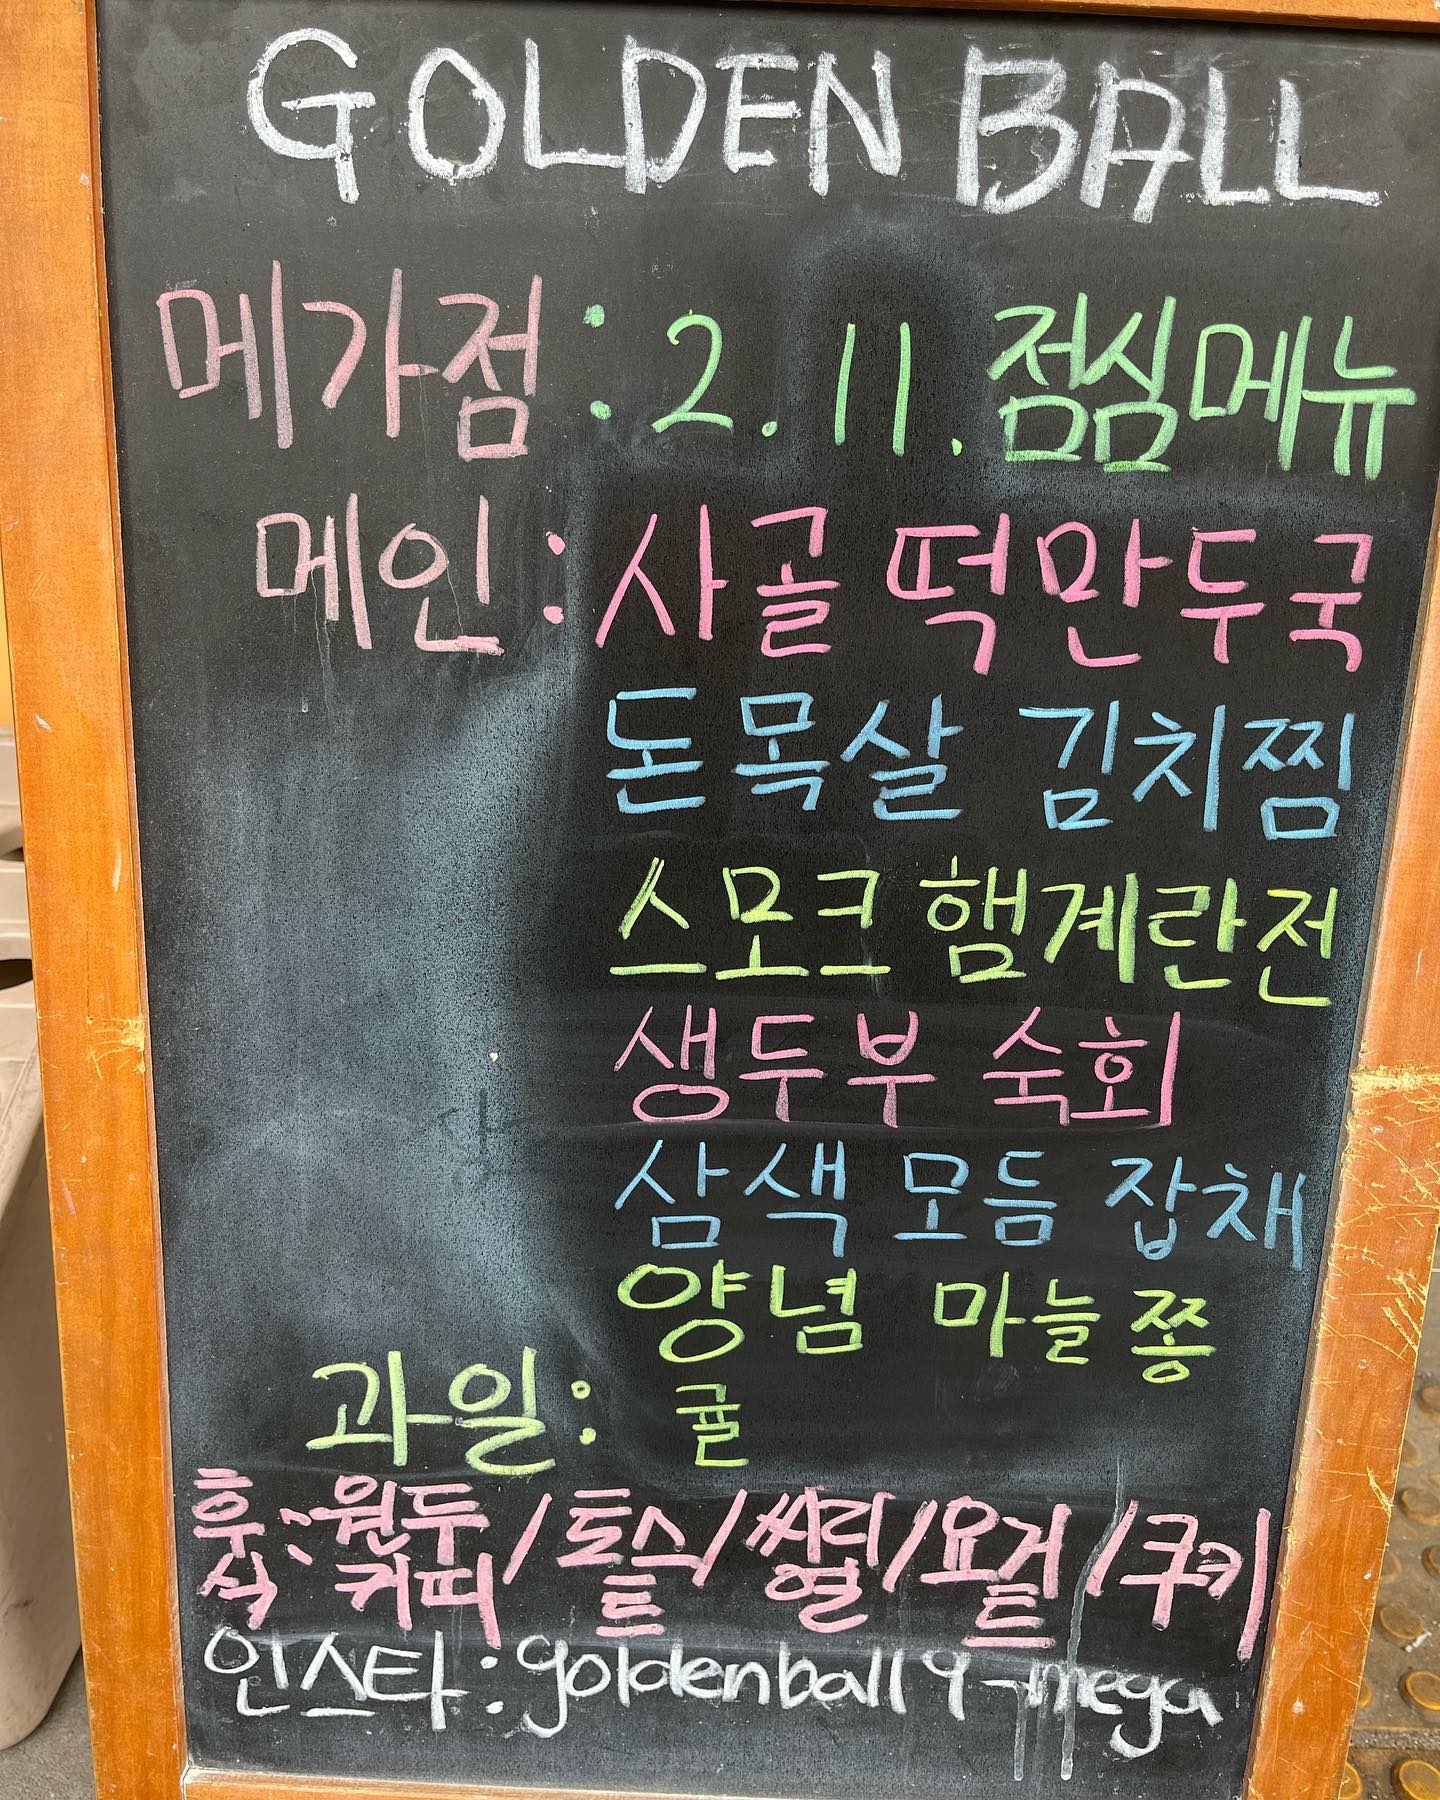 GOLDEN BALL
메가점 : 2. 11. 점심메뉴
메인 : 사골 떡만두국
돈목살 김치찜
스모크 햄계란전
생두부 숙회
삼색 모듬 잡채
양념 마늘쫑
과일 : 귤
후식 : 원두커피 / 토스트 / 씨리얼 / 요거트 / 쿠키
인스타 : goldenball9_mega